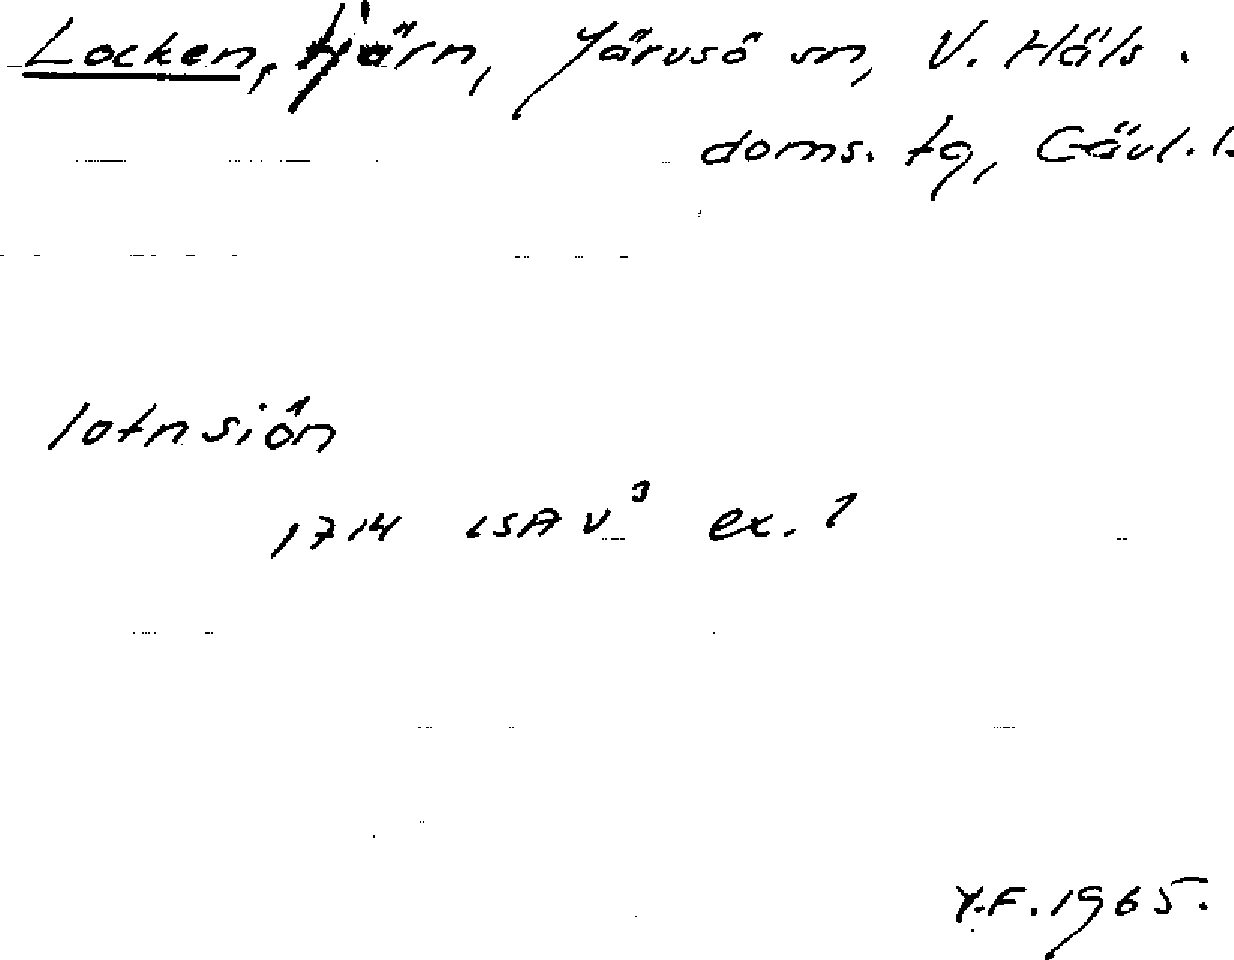 Locken, tjärn, Järvsö sn, V. Häls.
doms. tg, Gävl. l.
lotnsiön
1714 LSA V³ ex. 1
Y.F. 1965.